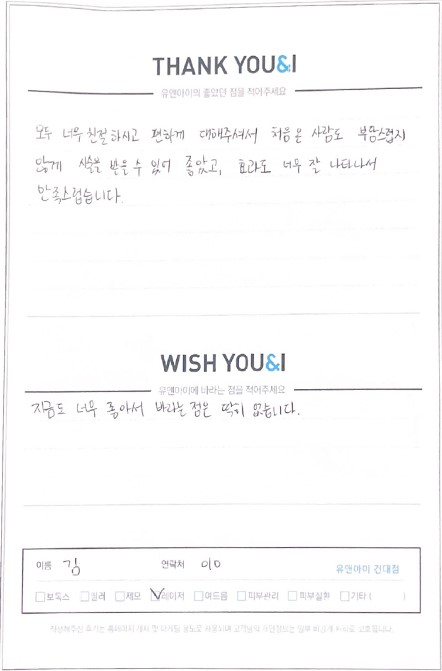 THANK YOU&I
유앤아이의 좋았던 점을 적어주세요
모두 너무 친절하시고 편하게 대해주셔서 처음온 사람도 부담스럽지
않게 시술을 받을 수 있어 좋았고, 효과도 너무 잘 나타나서
만족스럽습니다.
WISH YOU&I
유앤아이에 바라는 점을 적어주세요
지금도 너무 좋아서 바라는 점은 딱히 없습니다.
이름 김 연락처 010 유앤아이 건대점
보톡스 필러 제모 레이저 여드름 피부관리 피부질환 기타 ( )
작성해주신 후기는 홈페이지 게시 및 마케팅 용도로 사용되며 고객님의 개인정보는 일부 비공개 처리로 보호됩니다.